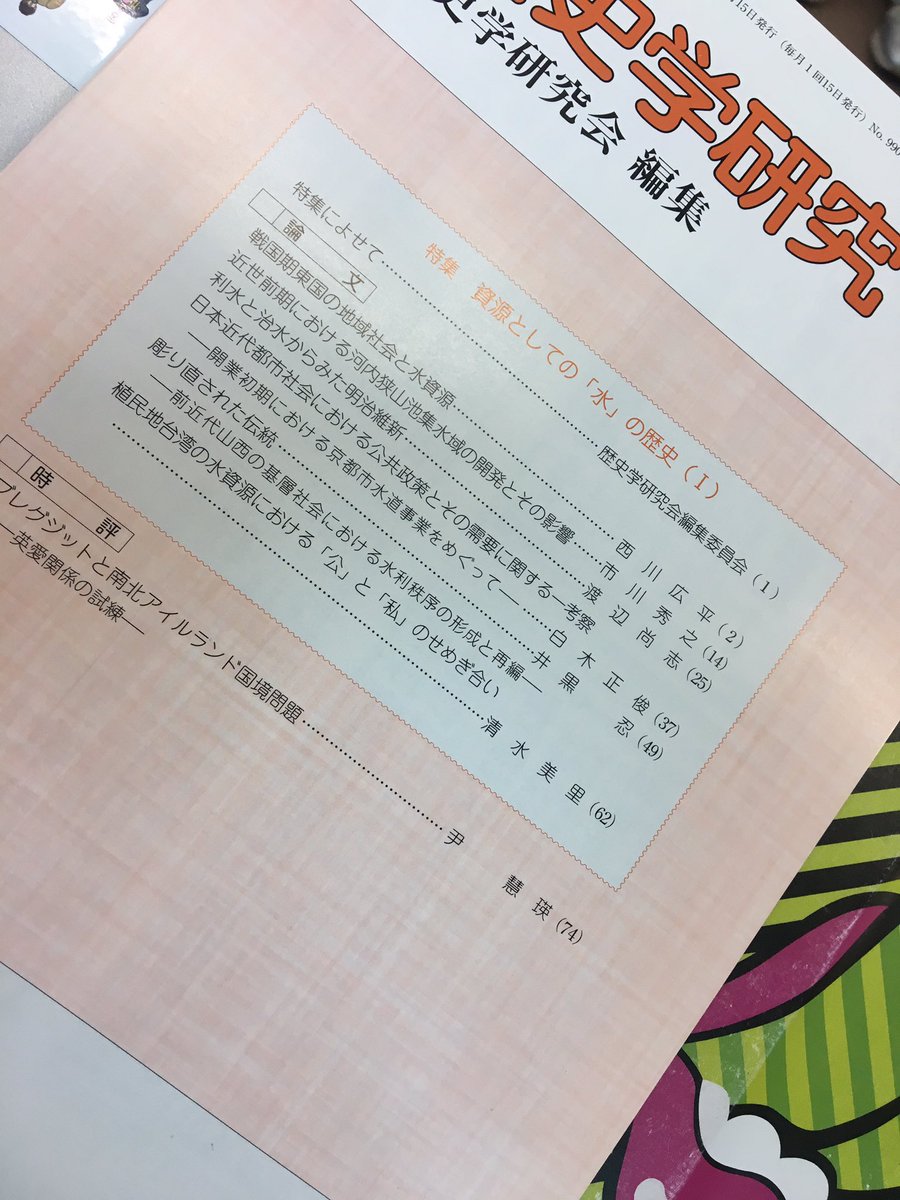 月15日発行(毎月1回15日発行)No. 990
史学研究
史学研究会 編集
特集 資源としての「水」の歴史(Ⅰ)
特集によせて……………歴史学研究会編集委員会(1)
論文
戦国期東国の地域社会と水資源……………西川広平(2)
近世前期における河内狭山池集水域の開発とその影響……市川秀之(14)
利水と治水からみた明治維新……………渡辺尚志(25)
日本近代都市社会における公共政策とその需要に関する一考察
―開業初期における京都市水道事業をめぐって―……白木正俊(37)
彫り直された伝統……………井黒忍(49)
―前近代山西の基層社会における水利秩序の形成と再編―
植民地台湾の水資源における「公」と「私」のせめぎ合い
……………清水美里(62)
時評
ブレグジットと南北アイルランド国境問題……………尹慧瑛(74)
―英愛関係の試練―